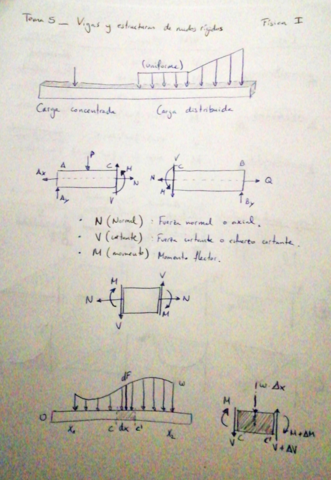 Tema 5 _ Vigas y estructuras de nudos rígidos
Física I
(uniforme)
Carga concentrada
Carga distribuida
A P C M
Ax N
Ay V
V C B
N M Q
By
· N (Normal) : Fuerza normal o axial.
· V (cortante) : Fuerza cortante o esfuerzo cortante.
· M (momento) Momento flector.
M V
N N
V M
dF w
O
C dx C'
w · Δx
M
M + ΔM
V C C'
V + ΔV